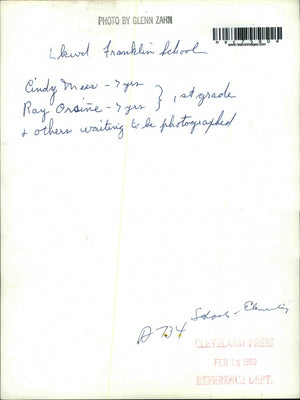 PHOTO BY GLENN ZAHN
Lkwd Franklin School
Cindy Mees - 7 yrs
Ray Orsine - 7 yrs } 1st grade
+ others waiting to be photographed
Schools - Elementary
CLEVELAND PRESS
FEB 15 1960
REFERENCE DEPT.